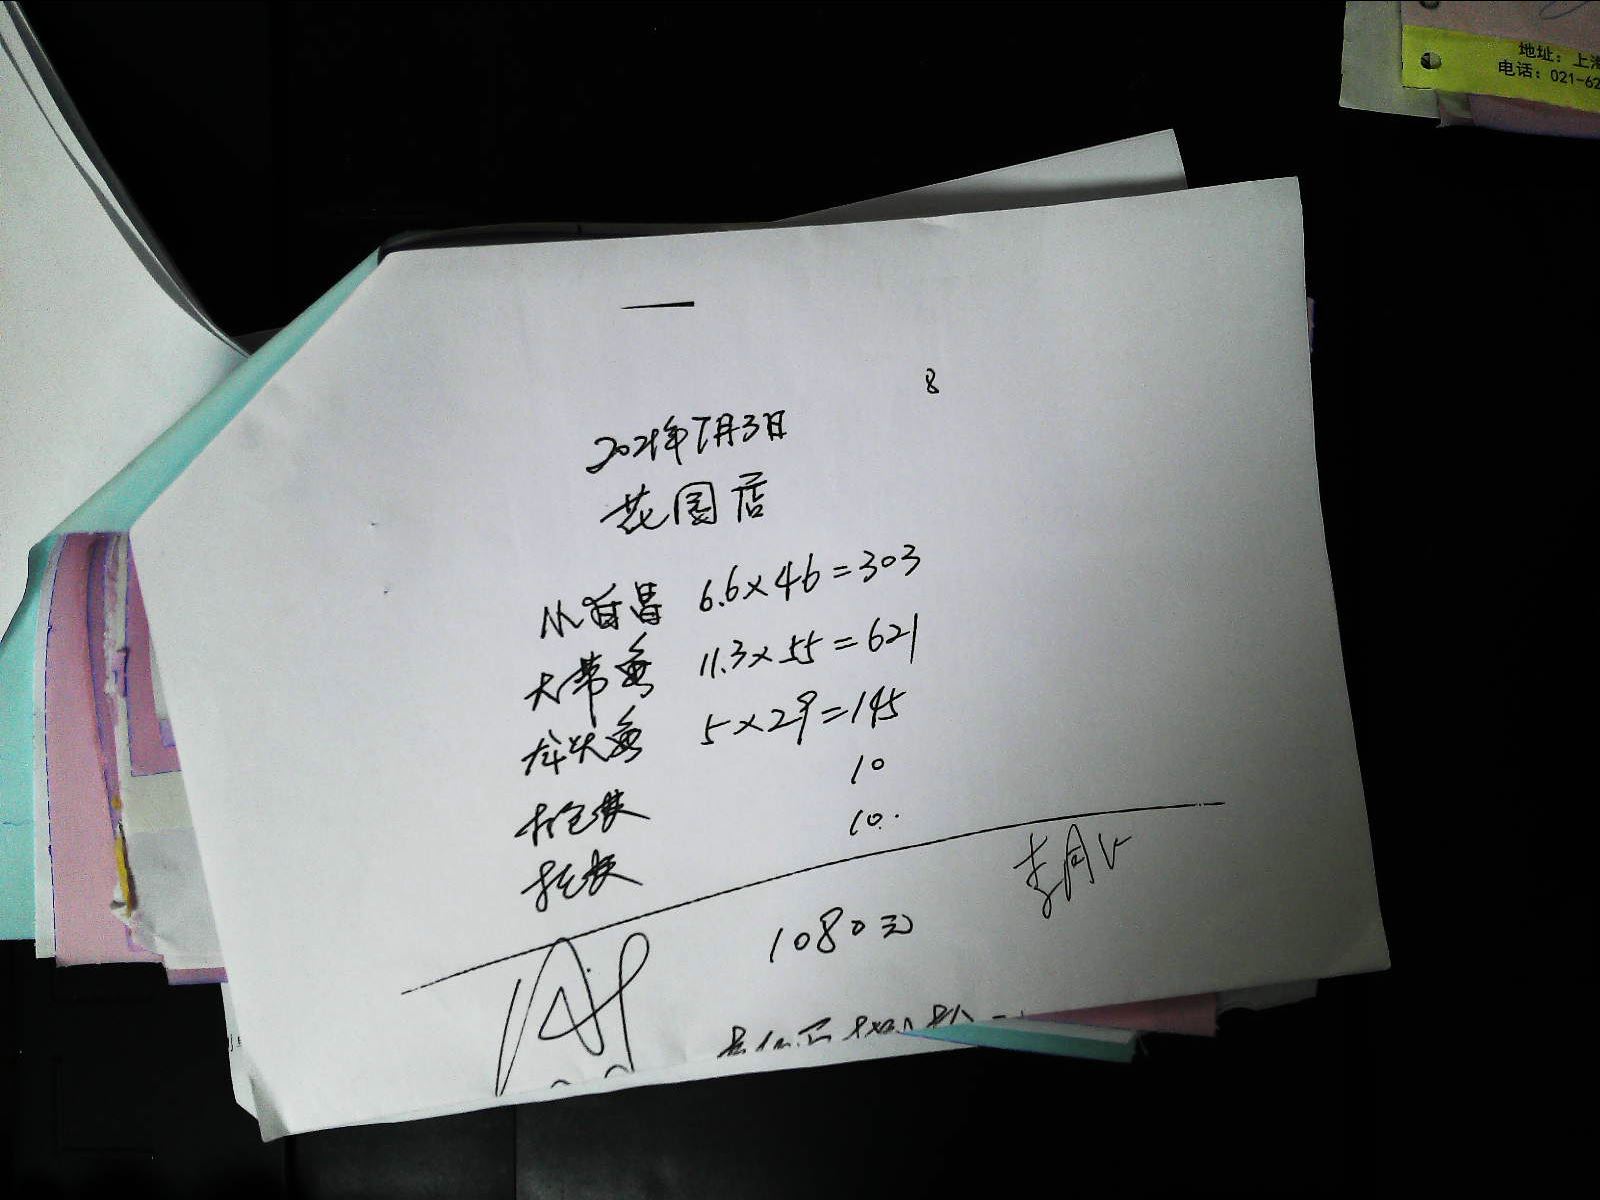 地址：上海
电话：021-62
8
2021年7月3日
花园店
小 6.6×46=303
大带鱼 11.3×55=621
龙头鱼 5×29=145
打包装 10
10.
1080元
李